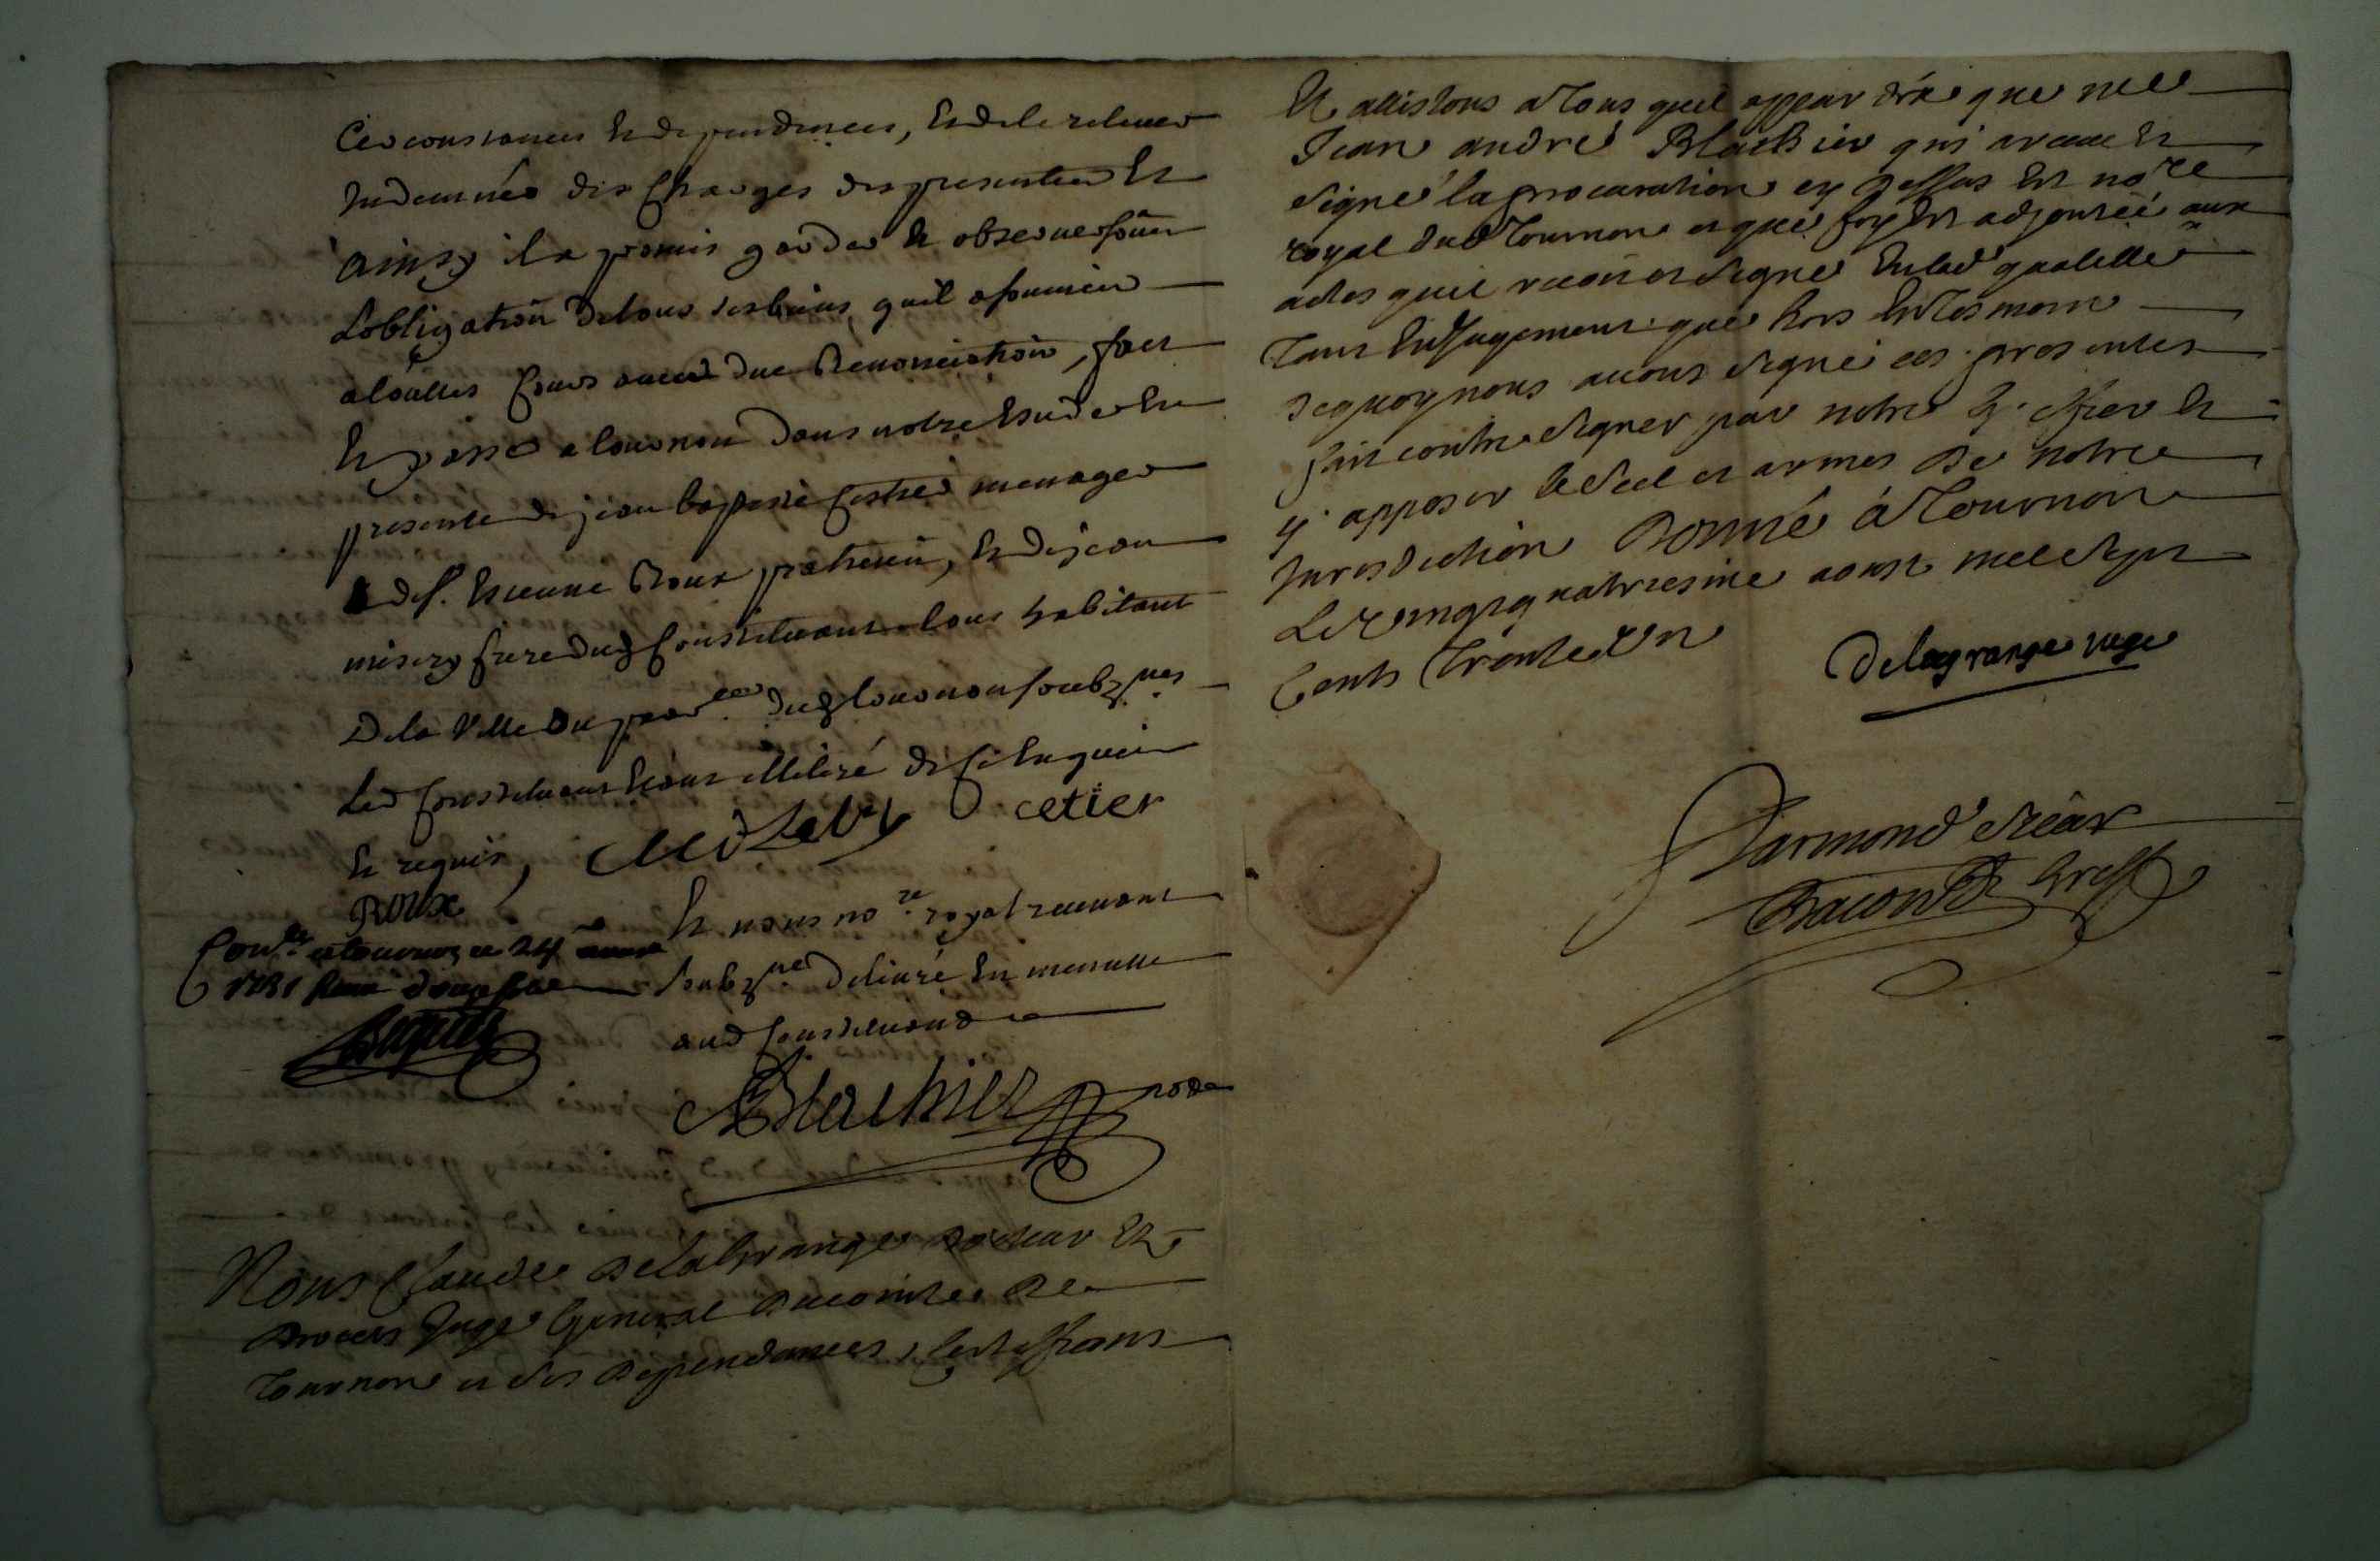 Circonstances et dependences, et de le relever
Indemnées des Charges des presentes Et
ainsy il a promis garder et observer soûs
L'obligation de tous ses biens, qu'il a soumis
a toutes Cours avec due Renonciation, fait
Et passé a tournon dans notre Etude En
presence de jean baptiste Cestier menager
de s.r Estienne Roux praticien, Et de jean
misery frere dud Constituant tous habitant
De la Ville dud tournon soubz.nes
Led Constituant illiteré de Ce Enquis
Et requis, Cetier
Roux
Et nous no.re royal recevant
Soubz.né deliuré En minutte
aud Constituand
Con.lé a tournon ce 24 aoust
1731
Blachier no.re
Nous Claude Delagrange Docteur Et
Droicts Juge General du Comté de
Tournon et ses Dependances, Certiffions
Et attestons a Tous quil appartiendra que me
Jean andré Blachier qui a receu Et
signé la procuration cy Dessus Est no.re
royal dud Tournon et que foy Est adjoutée aux
actes quil recoit et signe En lad.e qualitté
Tant En Jugement que hors En Tesmoin
Dequoy nous avons signé ces presentes
fait contresigner par notre Greffier Et
y apposer le Scel et armes De Notre
Jurisdiction Donné à Tournon
Le Vingt quatriesme aoust mil Sept
Cents Trente Un
Delagrange juge
Par mond Sieur
Greff